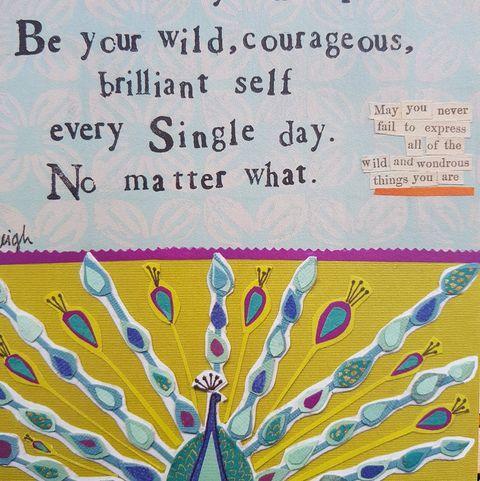 Be your wild, courageous,
brilliant self
every Single day.
No matter what.
May you never
fail to express
all of the
wild and wondrous
things you are